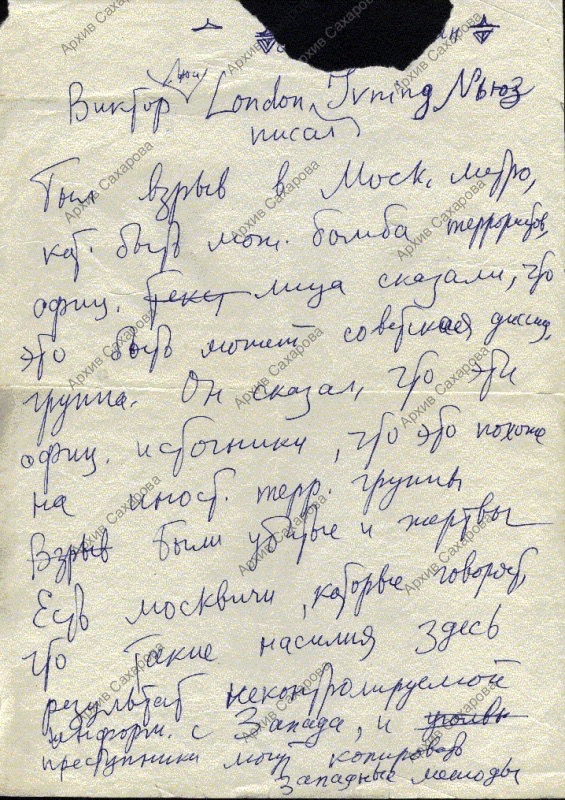 Луи
Виктор London Ivning Ньюз
писал
Был взрыв в Моск. метро,
кот. быть мож. бомба террористов,
офиц. текст лица сказали, что
это быть может советская диссид.
группа. Он сказал, что эти
офиц. источники, что это похоже
на иност. терр. группы
Взрыв Были убитые и жертвы
Есть москвичи, которые говорят,
что такие насилия здесь
результат неконтролируемой
информ. с Запада, и
преступники могут копировать
Западные методы
Архив Сахарова